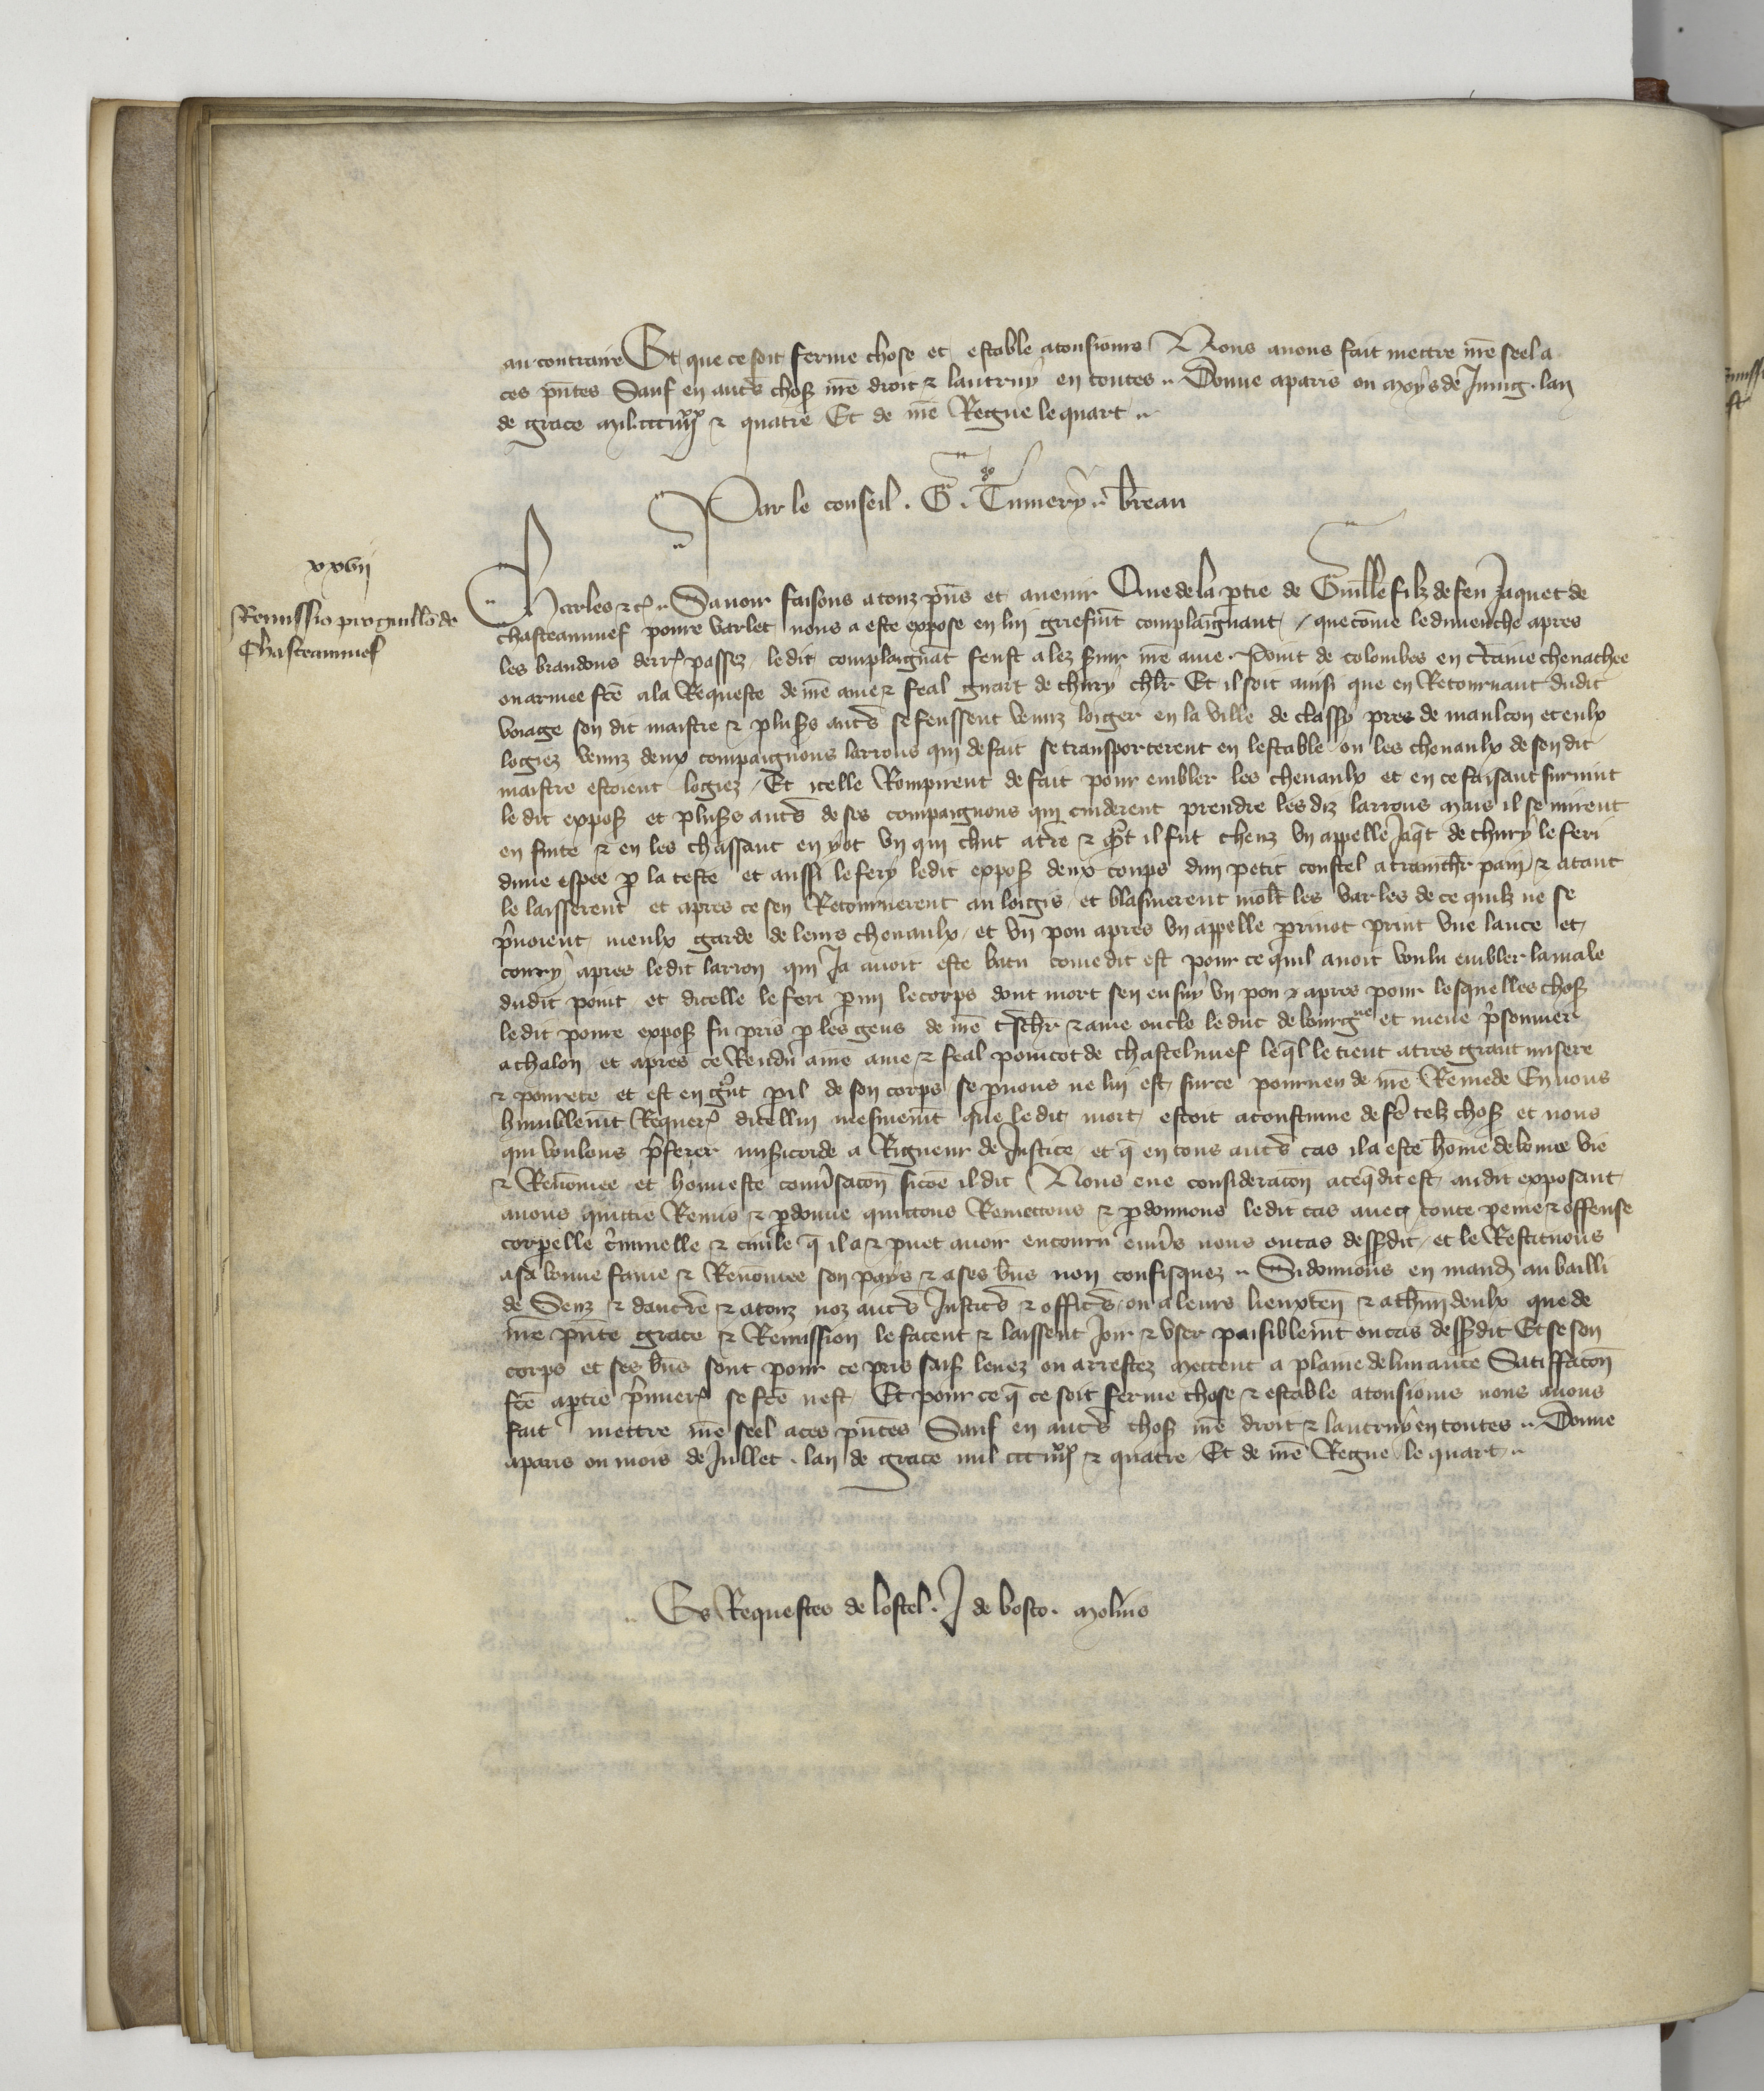 au contraire Et que ce soit ferme chose et estable a tousiours Nous auons fait mettre nr̄e seel a
ces pn̄tes Sauf en autͬs choses nr̄e droit ⁊ lautruy en toutes .. Donne a paris ou moys de Juing . lan
de grace mil . ccc iiijxx ⁊ quatre Et de nr̄e Regne le quart ..
Par le conseil . G . Tumery .. breau
xxvij
Remissio pro guillō de
Chasteaunuef
Charles ⁊c̄ .. Sauoir faisons a touz pn̄s et auenir Que de la ꝑtie de Guille filz de feu Jaquet de
chasteaunuef poure varlet nous a este expose en lui griefmt̄ complaignant / que cōme le dimenche apres
les brandons derr̄ passez ledit complaignāt feust alez seruir nr̄e ame . Point de colombes en c̄taine cheuachee
ou armee fc̄e a la Requeste de nr̄e ame ⁊ feal guart de chury chlr̄ Et il soit ainsi que en Retournant dudit
voiage son dit maistre ⁊ plus̄s autͬs se feussent venuz loigier en la ville de classy pres de maulcon et eulx
logiez venuz deux compaignons larrons qui de fait se transporterent en lestable ou les cheuaulx de son dit
maistre estoient logiez Et icelle Rompirent de fait pour embler les cheuaulx et en ce faisant suruint
ledit expos̄ et plus̄s autͬs de ses compaignons qui cuiderent prendre les diz larrons mais il se mirent
en fuite ⁊ en les chassant en y ot vn qui chut a tr̄e ⁊ qͣnt il fut cheuz vn appelle Jaqt̄ de chury le feri
dune espee ꝑ la teste et aussi le fery ledit expos̄ deux coups dun petit coustel a tranchr̄ pain ⁊ a tant
le laisserent et apres ce sen Retournerent au loigis et blasmerent molt̄ les varles de ce quilz ne se
pͬnoient mieulx garde de leurs cheuaulx et vn pou apres vn appelle perinot print vne lance et
coury apres ledit larron qui Ja auoit este batu come dit est pour ce quil auoit voulu embler la male
dudit point et dicelle le feri ꝑmi le corps dont mort sen ensuy vn pou apres pour lesquelles chos̄
ledit poure expos̄ fu pris ꝑ les gens de nr̄e tͬschr̄ ⁊ ame oncle le duc de bourgne et mene pͥsonnier
a chalon et apres ce Rendu a nr̄e ame ⁊ feal ponicot de chastelnuef leql̄ le tient a tres grant misere
⁊ pourete et est en gͣnt ꝑil de son corps se ꝑ nous ne lui est sur ce pourueu de nr̄e Remede En nous
humblemt̄ Requerͬ dicellui mesmemt̄ que ledit mort estoit acoustume de fͬe telz chos̄ et nous
qui voulons pͬferer misͬicorde a Rigueur de Justice et q̄ en tous autͬs cas il a este hom̄e de bonne vie
⁊ Renōmee et honneste conūsacōn sicōe il dit Nous eue consideracōn a ce q̄ dit est audit exposant
auons quictie Remis ⁊ ꝑdonne quictons Remettons ⁊ ꝑdonnons ledit cas auec toute peine ⁊ offense
corpelle cͥminelle ⁊ ciuile q̄ il a ⁊ puet auoir encouru enuͬs nous ou cas dessͧsdit et le Restituons
a sa bonne fame ⁊ Renōmee son pays ⁊ a ses bn̄s non confisquez .. Si donnons en mand̄ au bailli
de Senz ⁊ dautrͬe ⁊ a touz noz autͬs Justicͬs ⁊ officͬs ou a leurs lieuxten̄ ⁊ a chn̄ deulx que de
nr̄e pn̄te grace ⁊ Remission le facent ⁊ laissent Joir ⁊ vser paisiblemt̄ ou cas dessͧsdit Et se son
corps et ses bn̄s sont pour ce pris sais̄ leuez ou arrestez mettent a plaine deliurance Satiffacōn
fc̄e a ꝑtie pͥmierͬ se fc̄e nest Et pour ce q̄ ce soit ferme chose ⁊ estable a tousiours nous auons
fait mettre nr̄e seel a ces pn̄tes Sauf en autͬs chos̄ nr̄e droit ⁊ lautruy en toutes .. Donne
a paris ou mois de Juillet . lan de grace mil ccc iiijxx ⁊ quatre Et de nr̄e Regne le quart ..
.. Es Requestes de lostel . J de bosco . molins